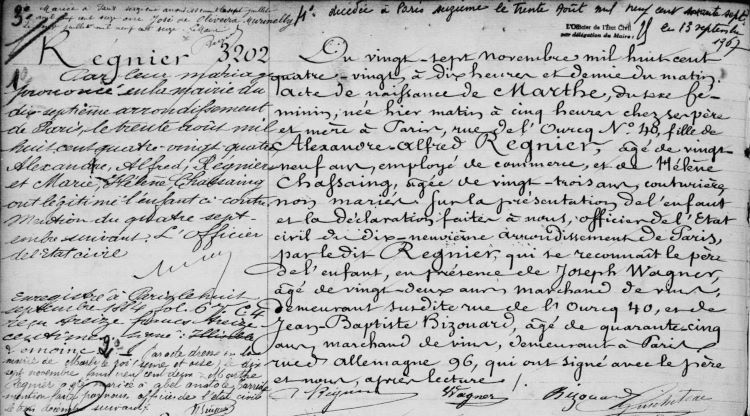 3º Mariée à Paris
José de Oliveira
4º décédée à Paris seizième le trente Août mil neuf cent soixante sept
L'Officier de l'État Civil
par délégation du Maire
le 13 septembre
1967
Regnier
3202
Par leur mariage
prononcé en la mairie du
dix-septième arrondissement
de Paris, le trente août mil
huit cent quatre-vingt quatre
Alexandre, Alfred, Régnier
et Marie, Hélène Chassaing
ont légitimé l'enfant ci-contre
Mention du quatre sept-
embre suivant. L'Officier
de l'état civil
Enregistré à Paris le huit
septembre 1884
reçu treize francs treize
centimes
2º
Par acte dressé en la
mairie de
sept novembre mil neuf cent
Regnier a été mariée à
mention faite par nous officier de l'état civil
le dix décembre suivant.
Du vingt-sept Novembre mil huit cent
quatre-vingt à dix heures et demie du matin.
acte de naissance de Marthe, du sexe fé-
minin, née hier matin à cinq heures chez ses père
et mère à Paris, rue de l'Ourcq Nº 40, fille de
Alexandre-Alfred Regnier, âgé de vingt-
neuf ans, employé de commerce, et de Hélène
Chassaing, âgée de vingt-trois ans, couturière
non mariés. Sur la présentation de l'enfant
et la déclaration faites à nous, officier de l'Etat
civil du dix-neuvième arrondissement de Paris,
par le dit Regnier, qui se reconnaît le père
de l'enfant, en présence de Joseph Wagner,
âgé de vingt-deux ans, marchand de vins,
demeurant susdite rue de l'Ourcq 40, et de
Jean Baptiste Bizouard, âgé de quarante-cinq
ans, marchand de vin, demeurant à Paris
rue d'Allemagne 96, qui ont signé avec le père
et nous, après lecture.
Regnier Wagner Bizouard